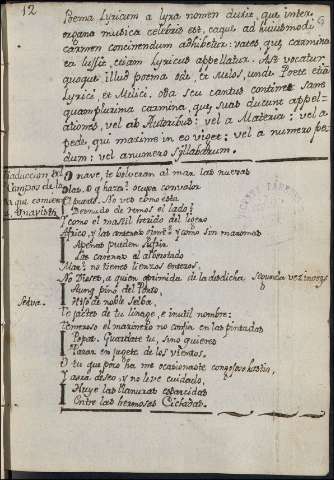 12
Poema Lyricum a lyra nomen duxit, que inter
organa musica celebris est, eaque ad huiusmodi
carmen concinendum adhibetur: vates, qui carmina
ea lussit, etiam Lyricus appellatur. Ast vocatur
quoque illud poema ode, et Melos, unde Poete etiam
Lyrici, et Melici. oda seu cantus continet sane
quamplurima carmina, que suas ducunt appel-
lationes, vel ab Autoribus: vel a Materia: vel a
pede, qui maxime in eo viget; vel a numero pe-
dum: vel a numero Syllabarum.
Traduccion de
Campos de la
que comienza
O navis
O nave, te bolveran al mar las nuevas
Olas. O q haza? ocupa con valor
El puerto. No ves como esta
Desnudo de remos el lado?
Y como el mastil herido del ligero
Africo, y las antenas gimen? y como sin maromas
Apenas pueden sufrir
Las carenas al alborotado
Mar? no tienes lienzos enteros,
No Dioses, a quien oprimida de la desdicha segunda vez invoqs
Aunq pino del Ponto,
Selva.
Hijo de noble Selba,
Te jactes de tu linage, e inutil nombre:
Temeroso el marinero no confia en las pintadas
Popas. Guardate tu, sino quieres
Parar en jugete de los vientos.
O tu que poco ha me ocasionaste congojoso hastio,
Y aora deseo, y no leve cuidado,
Huye las llanuras esparcidas
Entre las hermosas Cicladas.